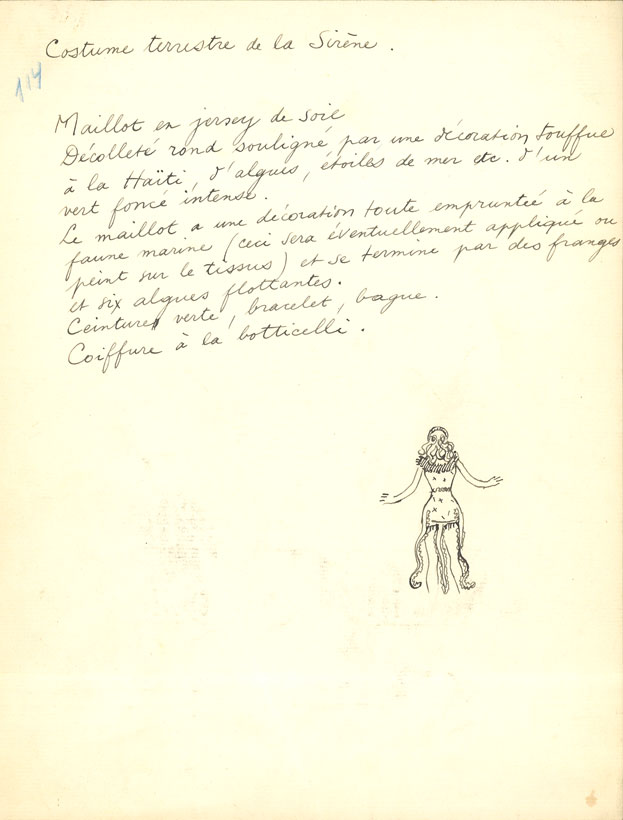 Costume terrestre de la Sirène .
114
Maillot en jersey de soie
Décolleté rond souligné par une décoration touffue
à la Haïti, d'algues, étoiles de mer etc. d'un
vert foncé intense.
Le maillot a une décoration toute empruntée à la
faune marine (ceci sera éventuellement appliqué ou
peint sur le tissus) et se termine par des franges
et six algues flottantes.
Ceinture verte, bracelet, bague.
Coiffure à la botticelli .